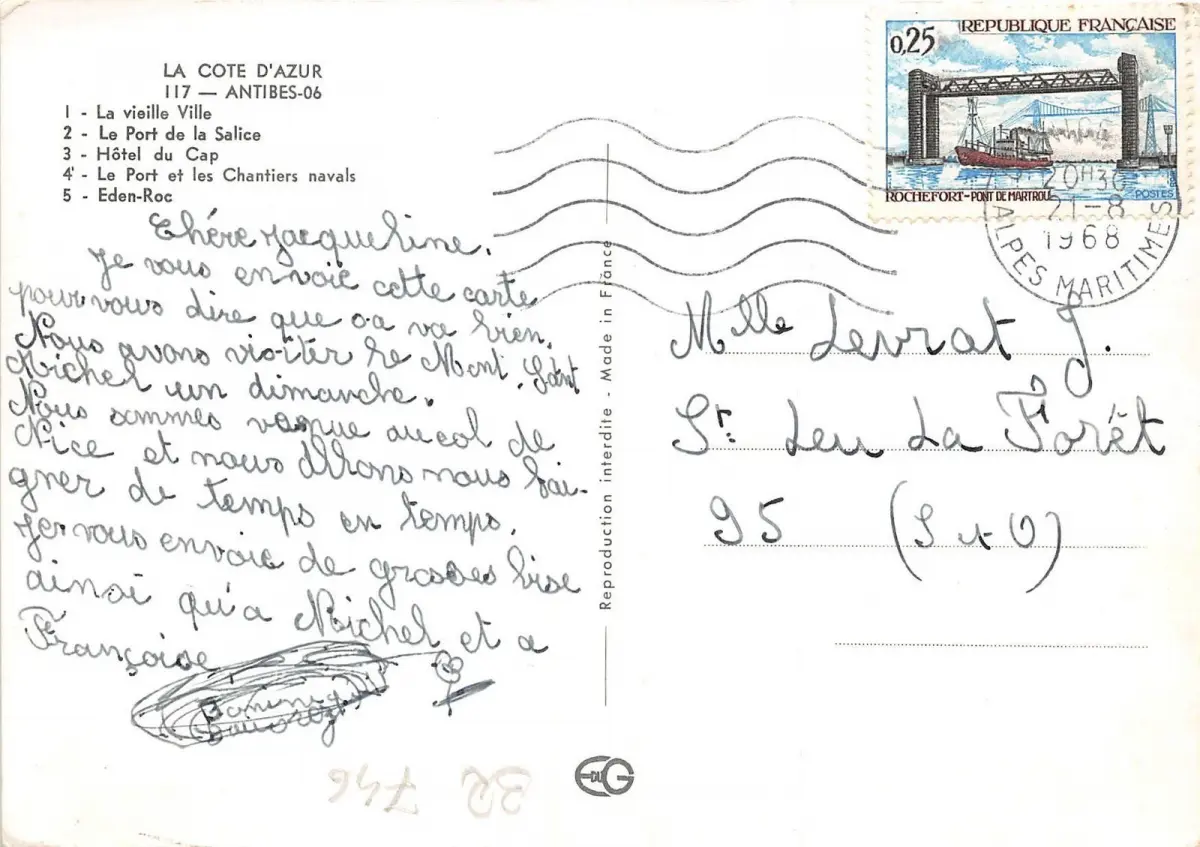 LA COTE D'AZUR
117 — ANTIBES-06
1 - La vieille Ville
2 - Le Port de la Salice
3 - Hôtel du Cap
4 - Le Port et les Chantiers navals
5 - Eden-Roc
Chére Jacqueline.
Je vous envoie cette carte
pour vous dire que sa va bien.
Nous avons visiter le Mont. Saint
Michel un dimanche.
Nous sommes au col de
Nice et nous allons nous bai-
gner de temps en temps.
Je vous envoie de grosses bise
ainsi qu'a Michel et a
Françoise
Reproduction interdite - Made in France
EDUG
REPUBLIQUE FRANÇAISE
0,25
ROCHEFORT-PONT DE MARTROU
POSTES
20H30
21-8
1968
ALPES MARITIMES
Mlle Levrat J.
St: Leu La Forêt
95 (S et O)
32 746